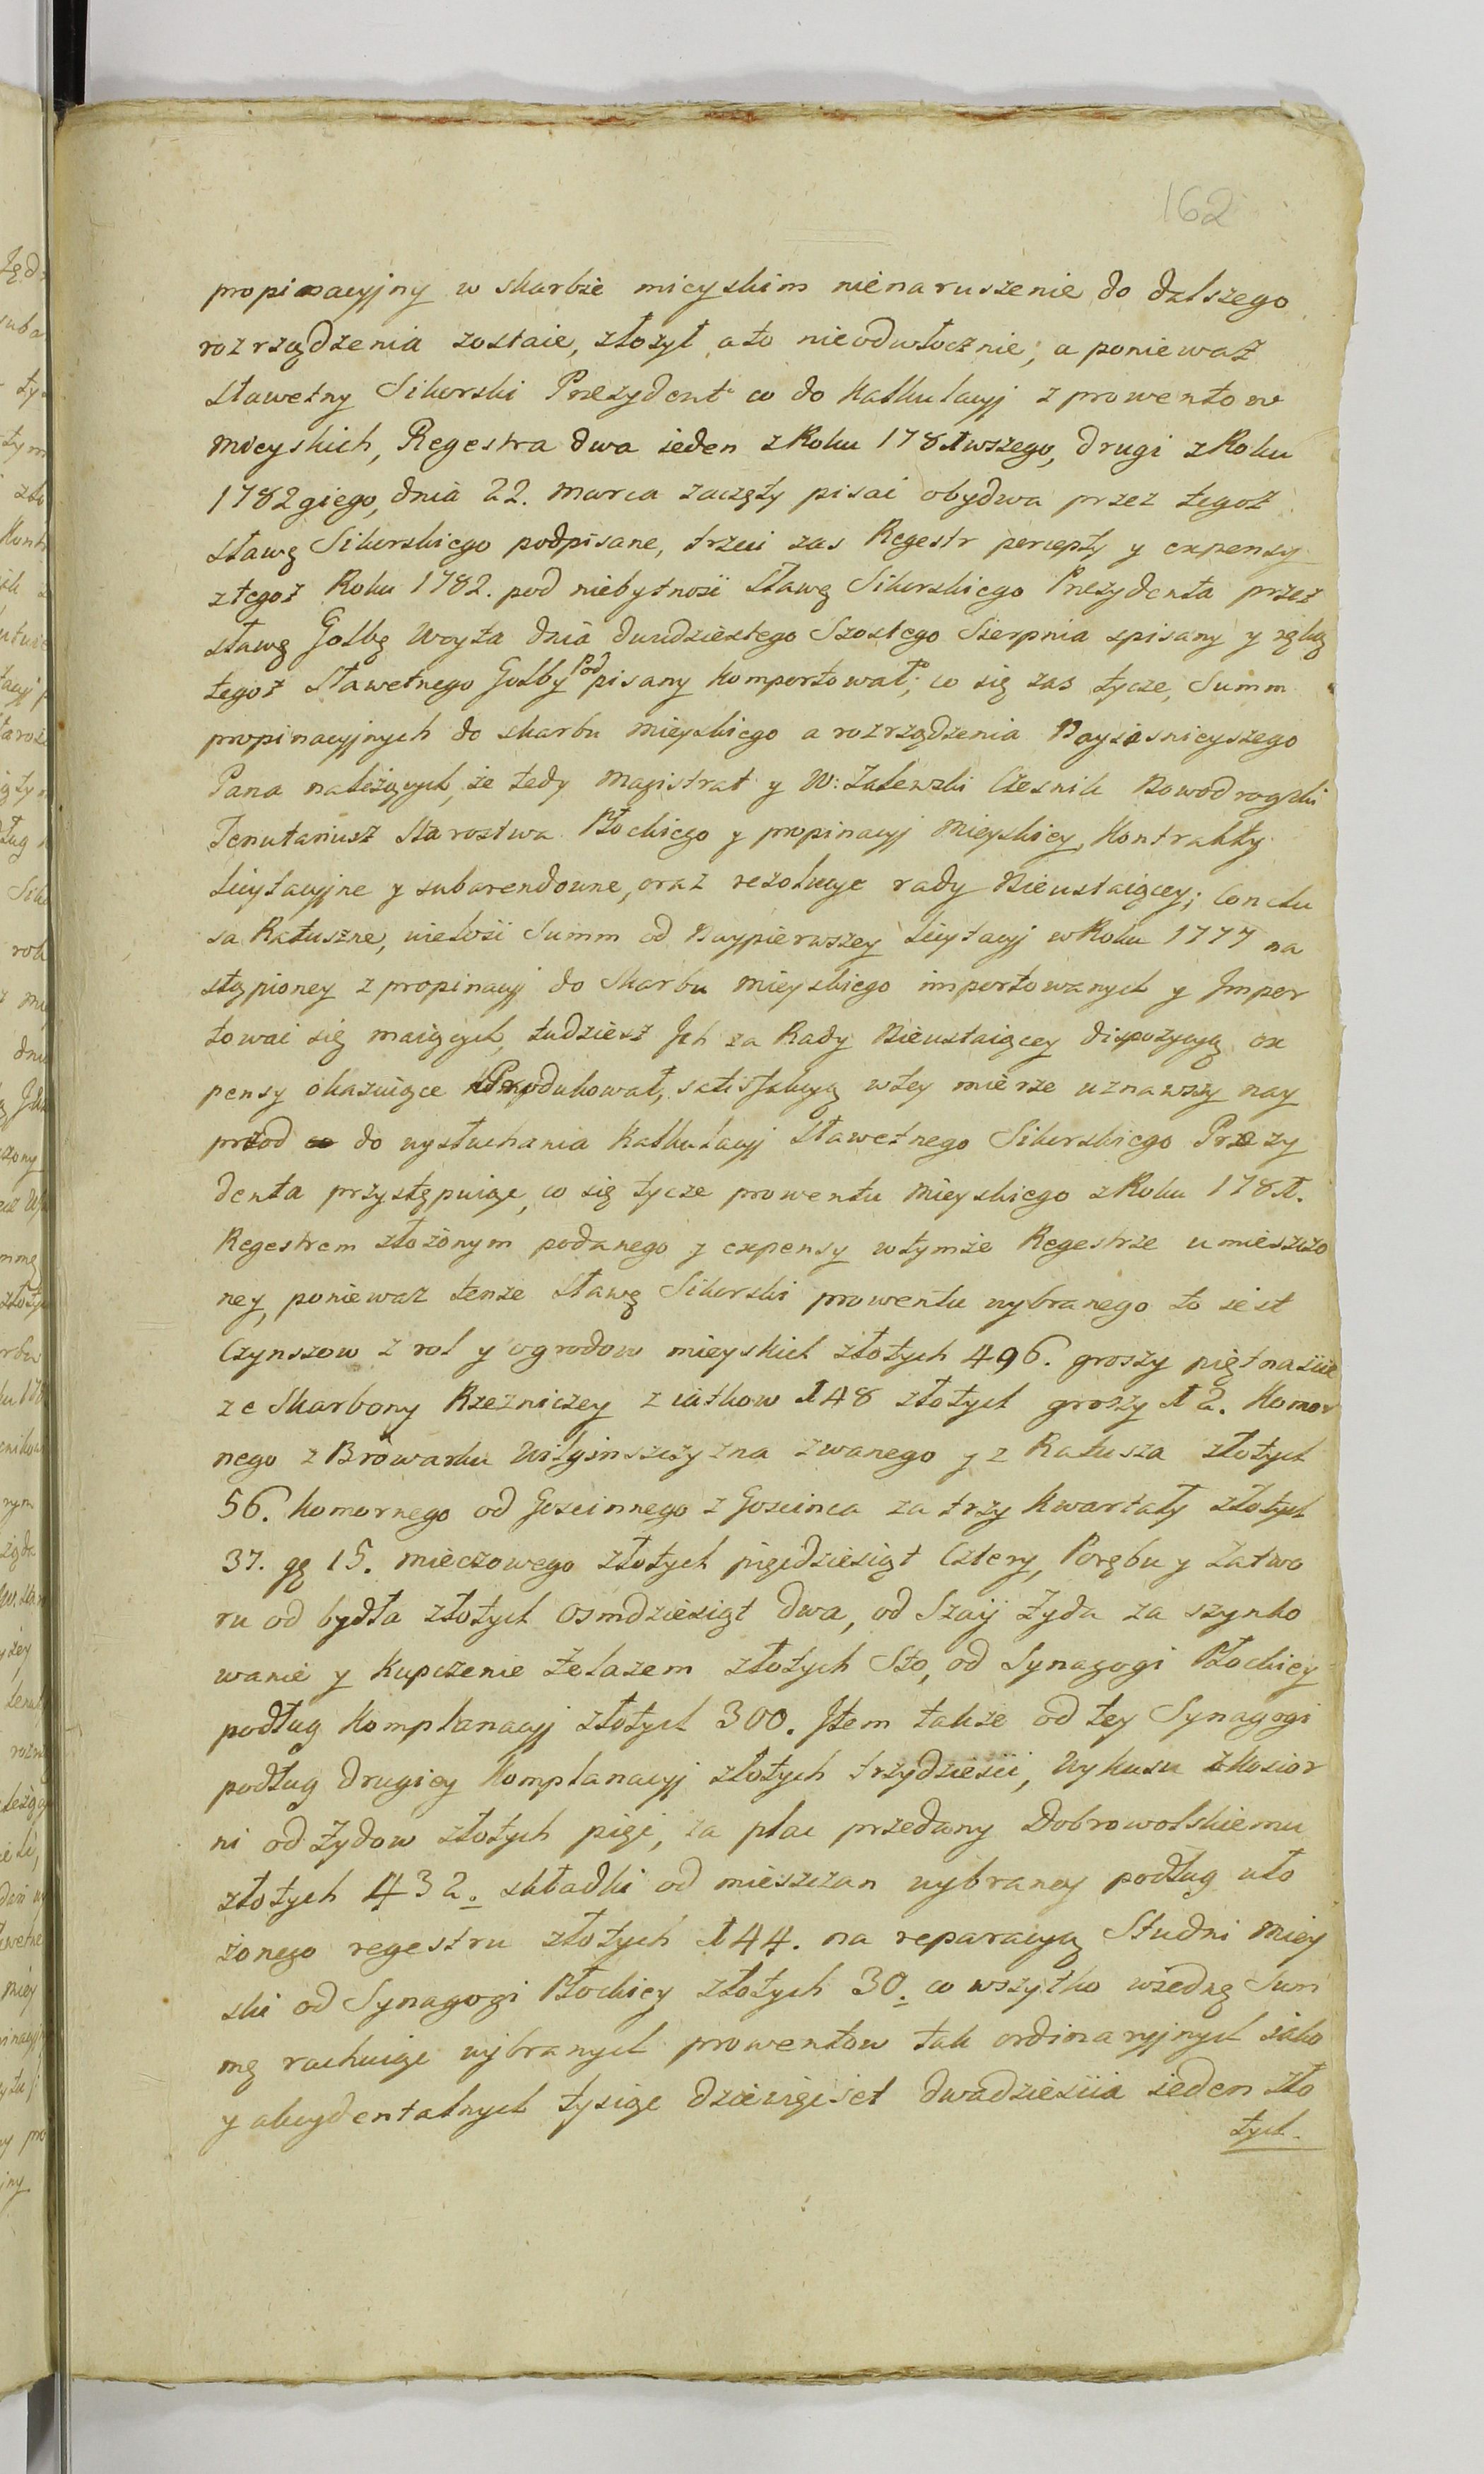 162
propinacyjny w skarbie mieyskim nienaruszenie do dalszego
rozrządzenia zostaie, złożył a to nieodwłocznie; a ponieważ
Sławetny Sikorski Prezydent co do Kalkulacyj z prowentow
Mieyskich, Regestra dwa ieden z Roku 1781wszego, drugi z Roku
1782giego, dnia 22. Marca zaczęty pisać obydwa przez tegoż
Sławę Sikorskiego podpisane, trzeci zas Regestr percepty y expensy
z tegoż Roku 1782. pod niebytnosć Sławę Sikorskiego Prezydenta przez
sławę Golbę Woyta dnia dwudziestego Szostego Sierpnia spisany y ręką
tegoż Sławetnego Golby Podpisany komportował; co się zas tycze, Summ
propinacyjnych do skarbu mieyskiego a rozrządzenia Nayiasnieyszego
Pana należących, że tedy Magistrat y W: Zalewski Czesnik Nowodrogski
Tenutariusz Starostwa Płockiego y propinacyj Mieyskiey, Kontrakty
licytacyjne y subarendowne, oraz rezolucye rady Nieustaiącey; Conclu
sa Ratuszne, wielosć Summ od Naypierwszey licytacyj w Roku 1777 na
stąpioney z propinacyj do Skarbu Mieyskiego importowanych y Impor
tować się maiących, tudziesz Ich za Rady Nieustaiącey dispozycyą ex
pensy okazuiące Produkował, satisfakcyą w tey mierze uznawszy nay
przod do wysłuchania Kalkulacyj Sławetnego Sikorskiego Prezy
denta przystępuiąc, co się tycze prowentu Mieyskiego z Roku 1781.
Regestrem złożonym podanego y expensy w tymże Regestrze umieszczo
ney, ponieważ tenze Sławę Sikorski prowentu wybranego to iest
Czynszow z rol y ogrodow mieyskich złotych 496. groszy piętnascie
ze Skarbony Rzezniczey z iatkow 148 złotych groszy 12. Komor
nego z Browarku Wilginszczyzna zwanego y z Ratusza złotych
56. Komornego od Goscinnego z Goscinca za trzy Kwartały złotych
37. gę 15. mieczowego złotych pięcdziesiąt Cztery, Porębu y Zatwo
ru od bydła złotych osmdziesiąt dwa, od Szaij Żyda za szynko
wanie y Kupczenie Żelazem złotych Sto, od Synagogi Płockiey
podług Komplanacyj złotych 300. Item także od tey Synagogi
podług drugiey Komplanacyj złotych trzydziesci, Wykusu z kosior
ni od Żydow złotych pięć, za plac przedany Dobrowolskiemu
złotych 432. składki od mieszczan wybraney podług uło
żonego regestru złotych 144. na reparacyą Studni Miey
ski od Synagogi Płockiey złotych 30. co wszytko w iedną Sum
mę rachuiąc wybranych prowentow tak ordinaryjnych iako
y akcydentalnych tysiąc dziewięćset dwadziescia ieden zło
tych.